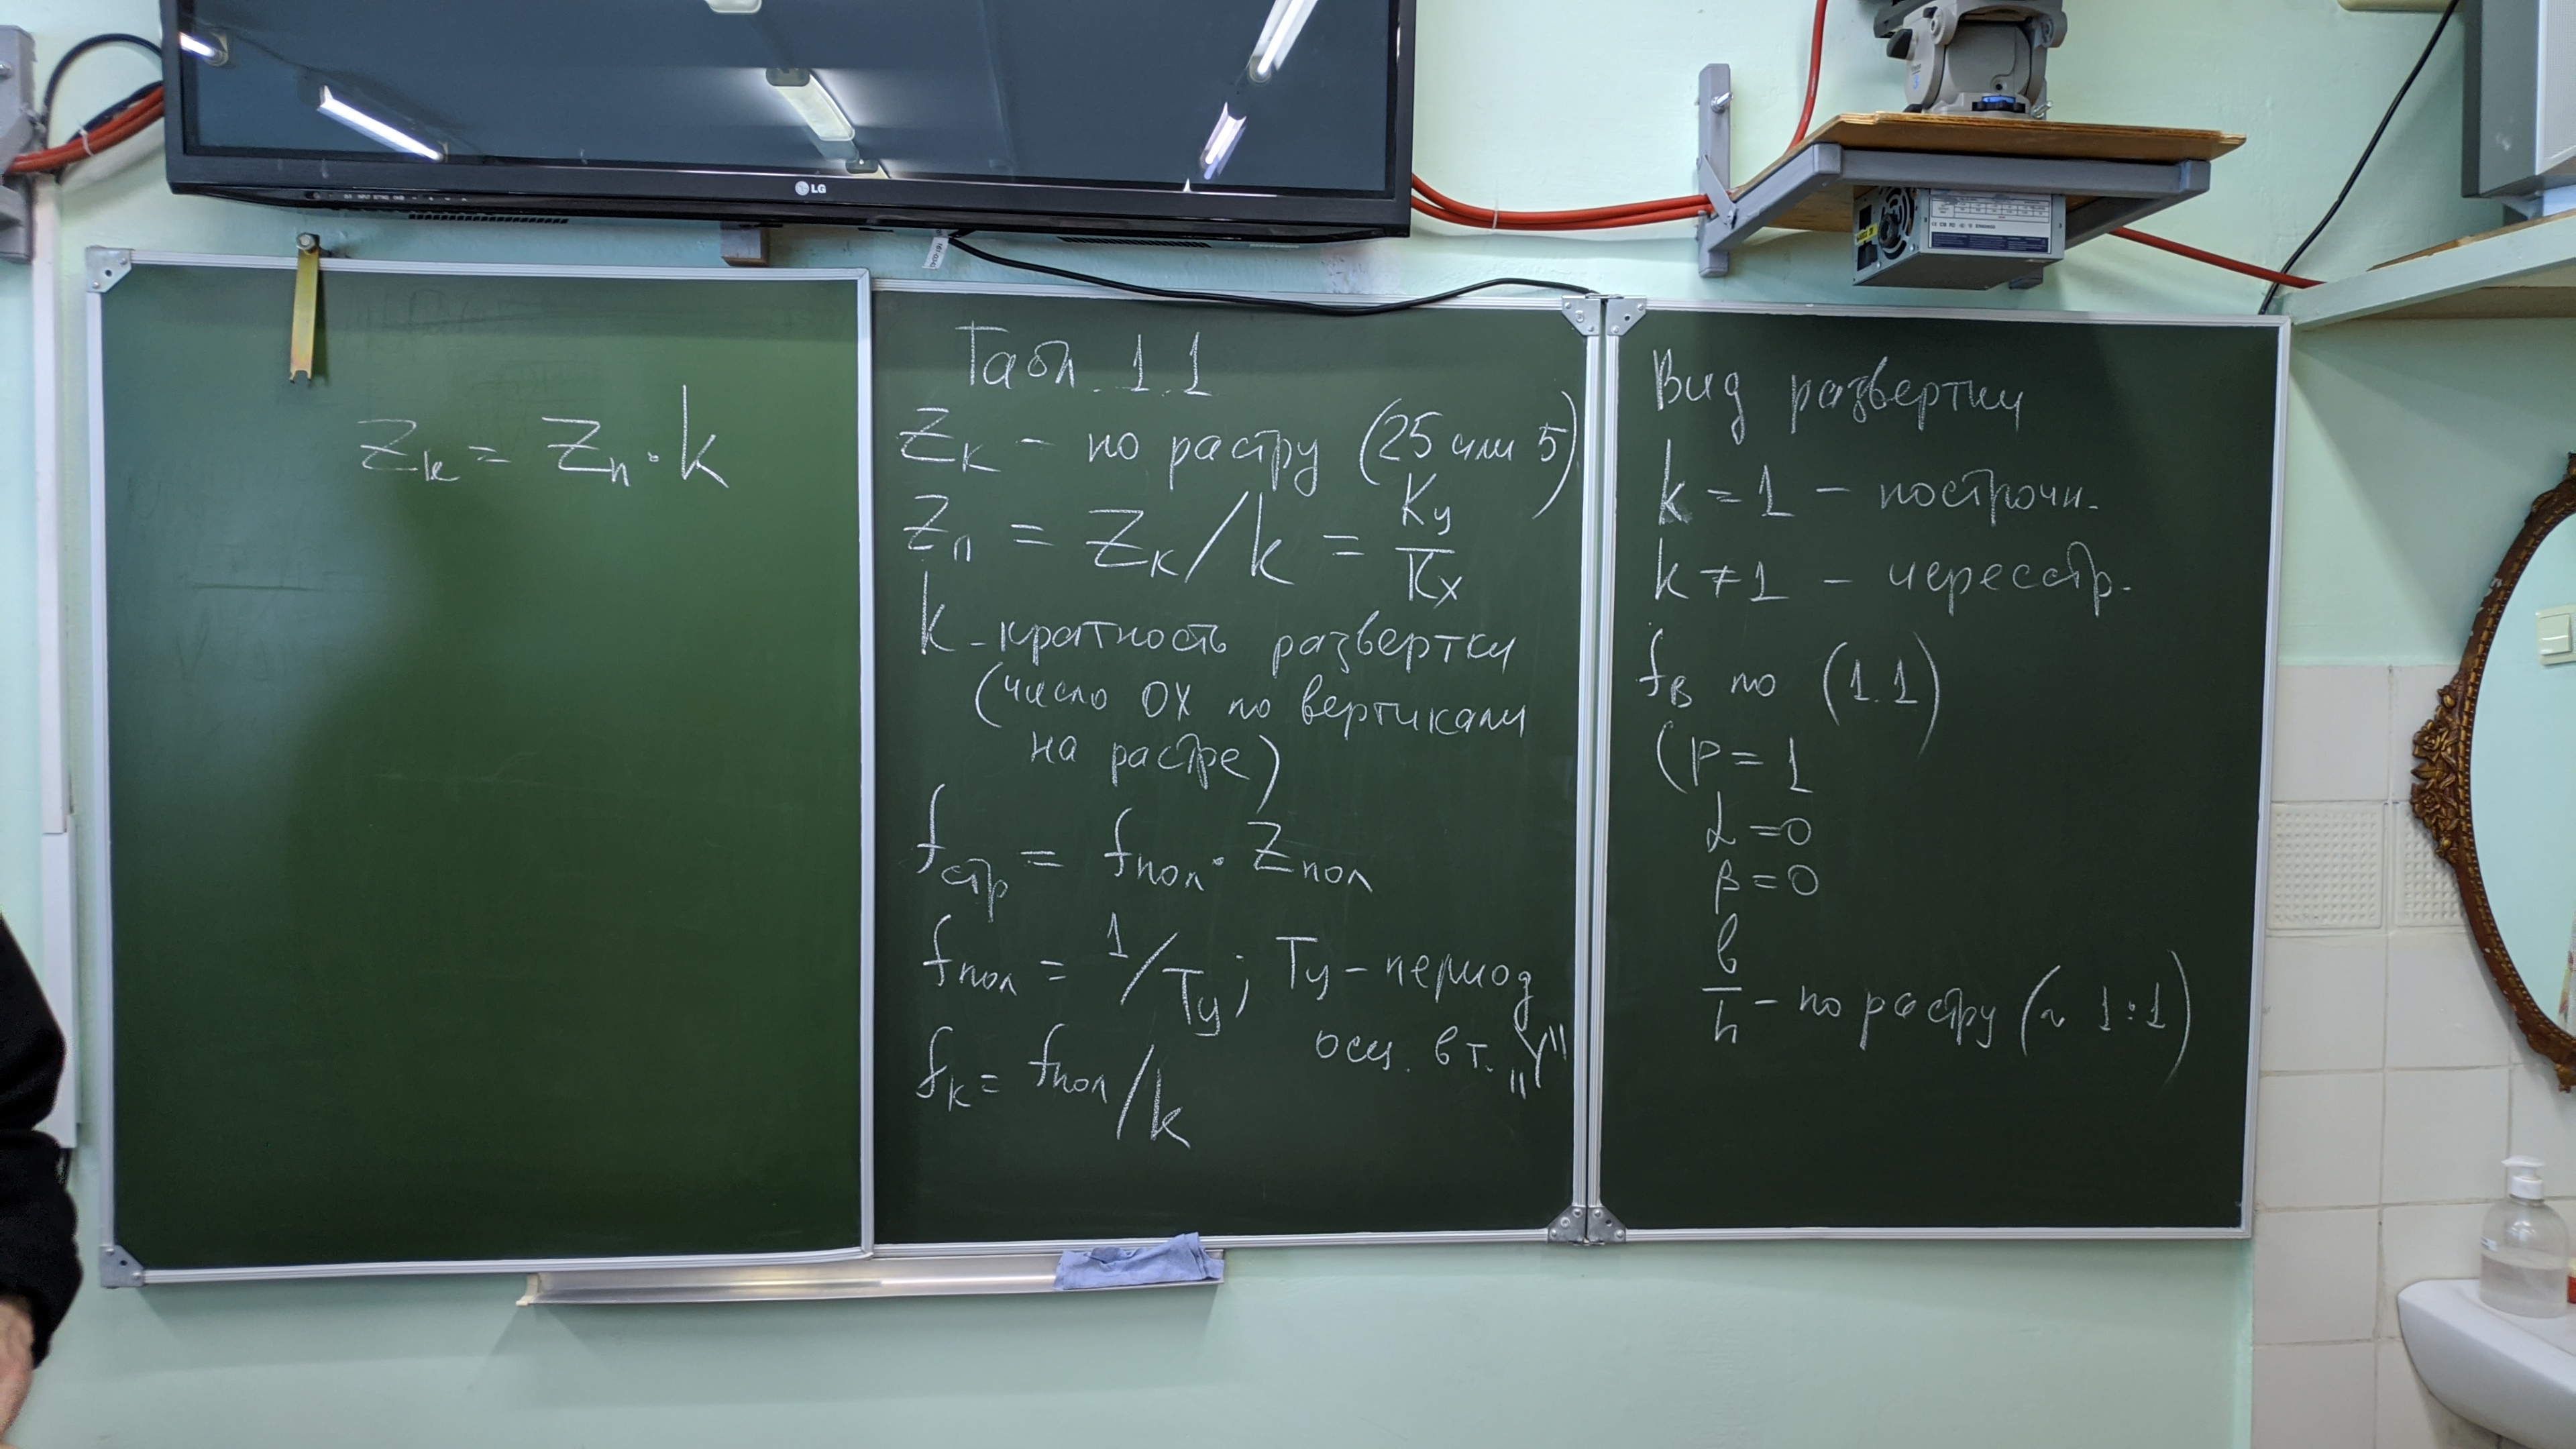 LG
Zк = Zп · k
Табл. 1.1
Zк – по растру (25 или 5)
Zп = Zк/k = Kу/Kх
k – кратность развертки
(число ОХ по вертикали
на растре)
fстр = fпол · Zпол
fпол = 1/Tу; Tу – период
осц. в т. „У"
fк = fпол/k
Вид развертки
k = 1 – построчн.
k ≠ 1 – чересстр.
fв по (1.1)
(p = 1
α = 0
β = 0
b/h – по растру (~ 1:1)